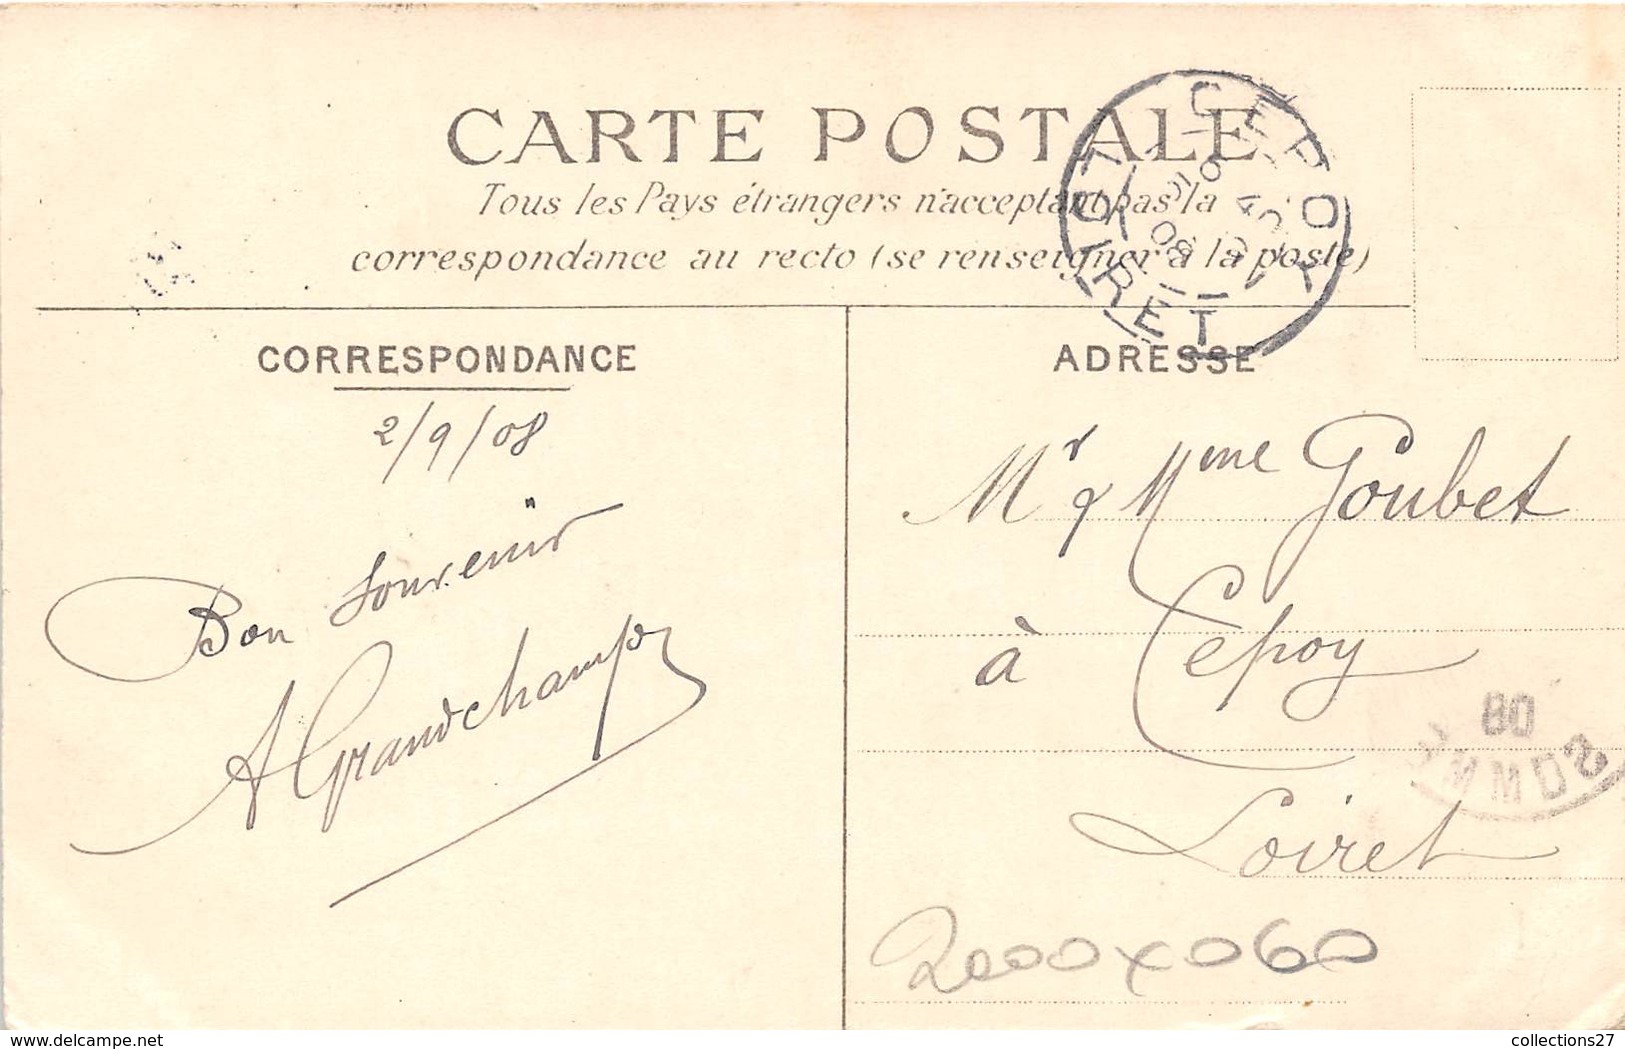 CARTE POSTALE
Tous les Pays étrangers n'acceptant pas la
correspondance au recto (se renseigner à la poste)
CEPOY
LOIRET
08
CORRESPONDANCE
2/9/08
Bon souvenir
A Grandchamp
ADRESSE
Mr & Mme Goubet
à Cepoy
Loiret
08
2000 x 060
delcampe.net
collections27